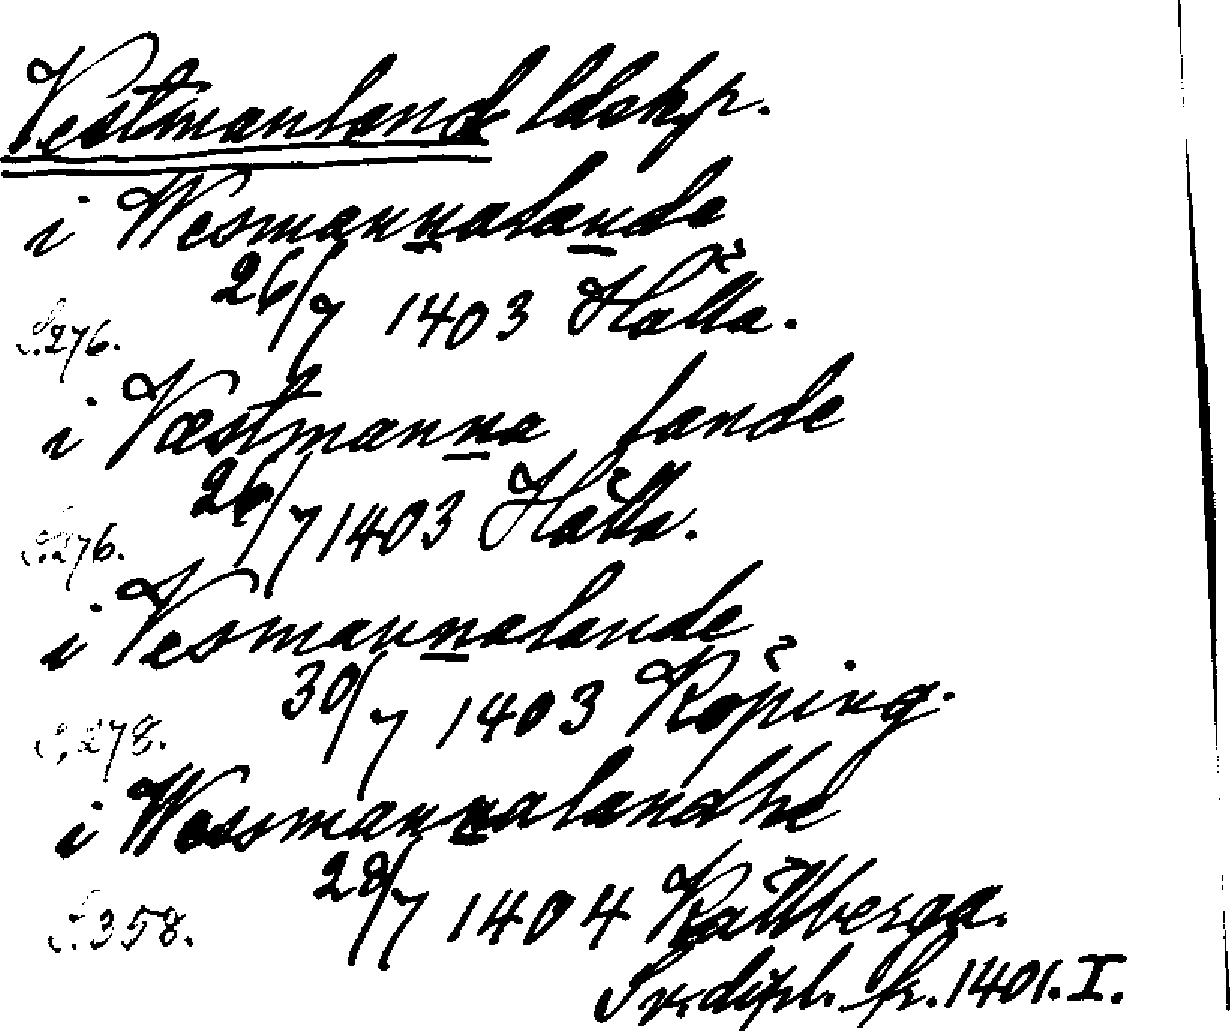 Vestmanland ldskp.
i Wesmannalande
26/7 1403 Hälla.
S.276.
i Væstmanna lande
26/7 1403 Hälla.
S.276.
i Vesmannalande
30/7 1403 Köping.
S.278.
i Wæssmannalandhe
28/7 1404
S.358.
Sv. dipl. fr. 1401. I.